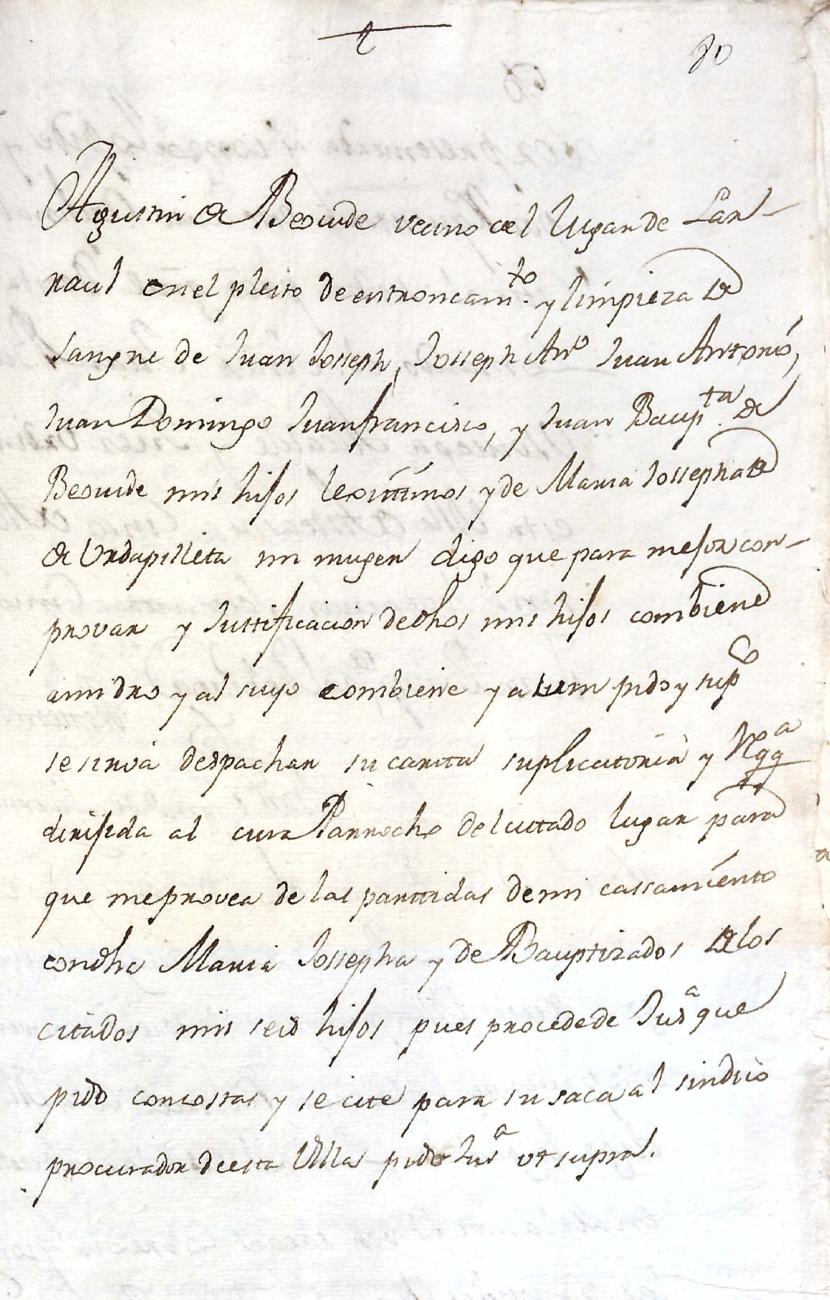 80
Agustin de Beovide vecino del lugar de Lar-
raul en el pleito de entroncam.to y limpieza de
sangre de Juan Joseph, Joseph Anº Juan Antonio,
Juan Domingo Juan francisco, y Juan Baup.ta de
Beovide mis hijos lexittimos y de Maria Josepha de
de Urdapilleta mi muger digo que para mejor con-
provar y Justtificacion de dhos mis hijos combiene
a mi dro y al suyo combiene y a Um pido y supco
se sirva despachar su cartta suplicatoria y
dirijida al cura Parrocho del cittado lugar para
que me provea de las parttidas de mi cassamiento
con dha Maria Josepha y de Bauptizados de los
citados mis seis hijos pues procede de Jusa que
pido con costas y se cite para su saca al sindico
procurador de esta Villa pido Jusa ut supra.